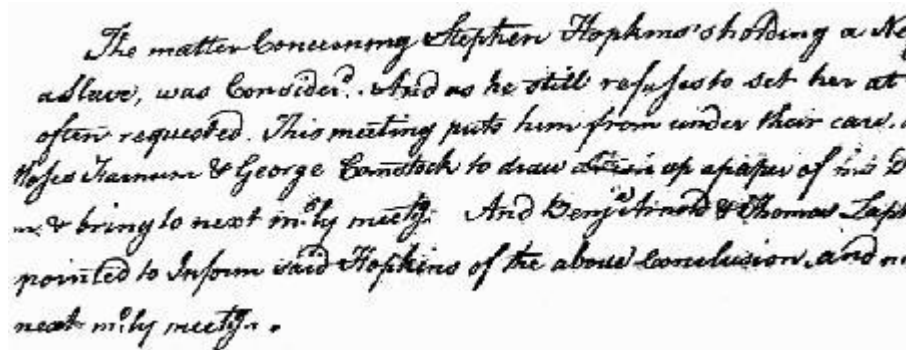 The matter Concerning Stephen Hopkins's holding a Ne
a Slave, was Consider'd. And as he still refuses to set her at
often requested. This meeting puts him from under their care.
Moses Farnum & George Comstock to draw up a paper of his D
& bring to next mo.ly meetg. And Benja. Arnold & Thomas Laph
pointed to Inform said Hopkins of the above Conclusion, and
next mo.ly meetg.